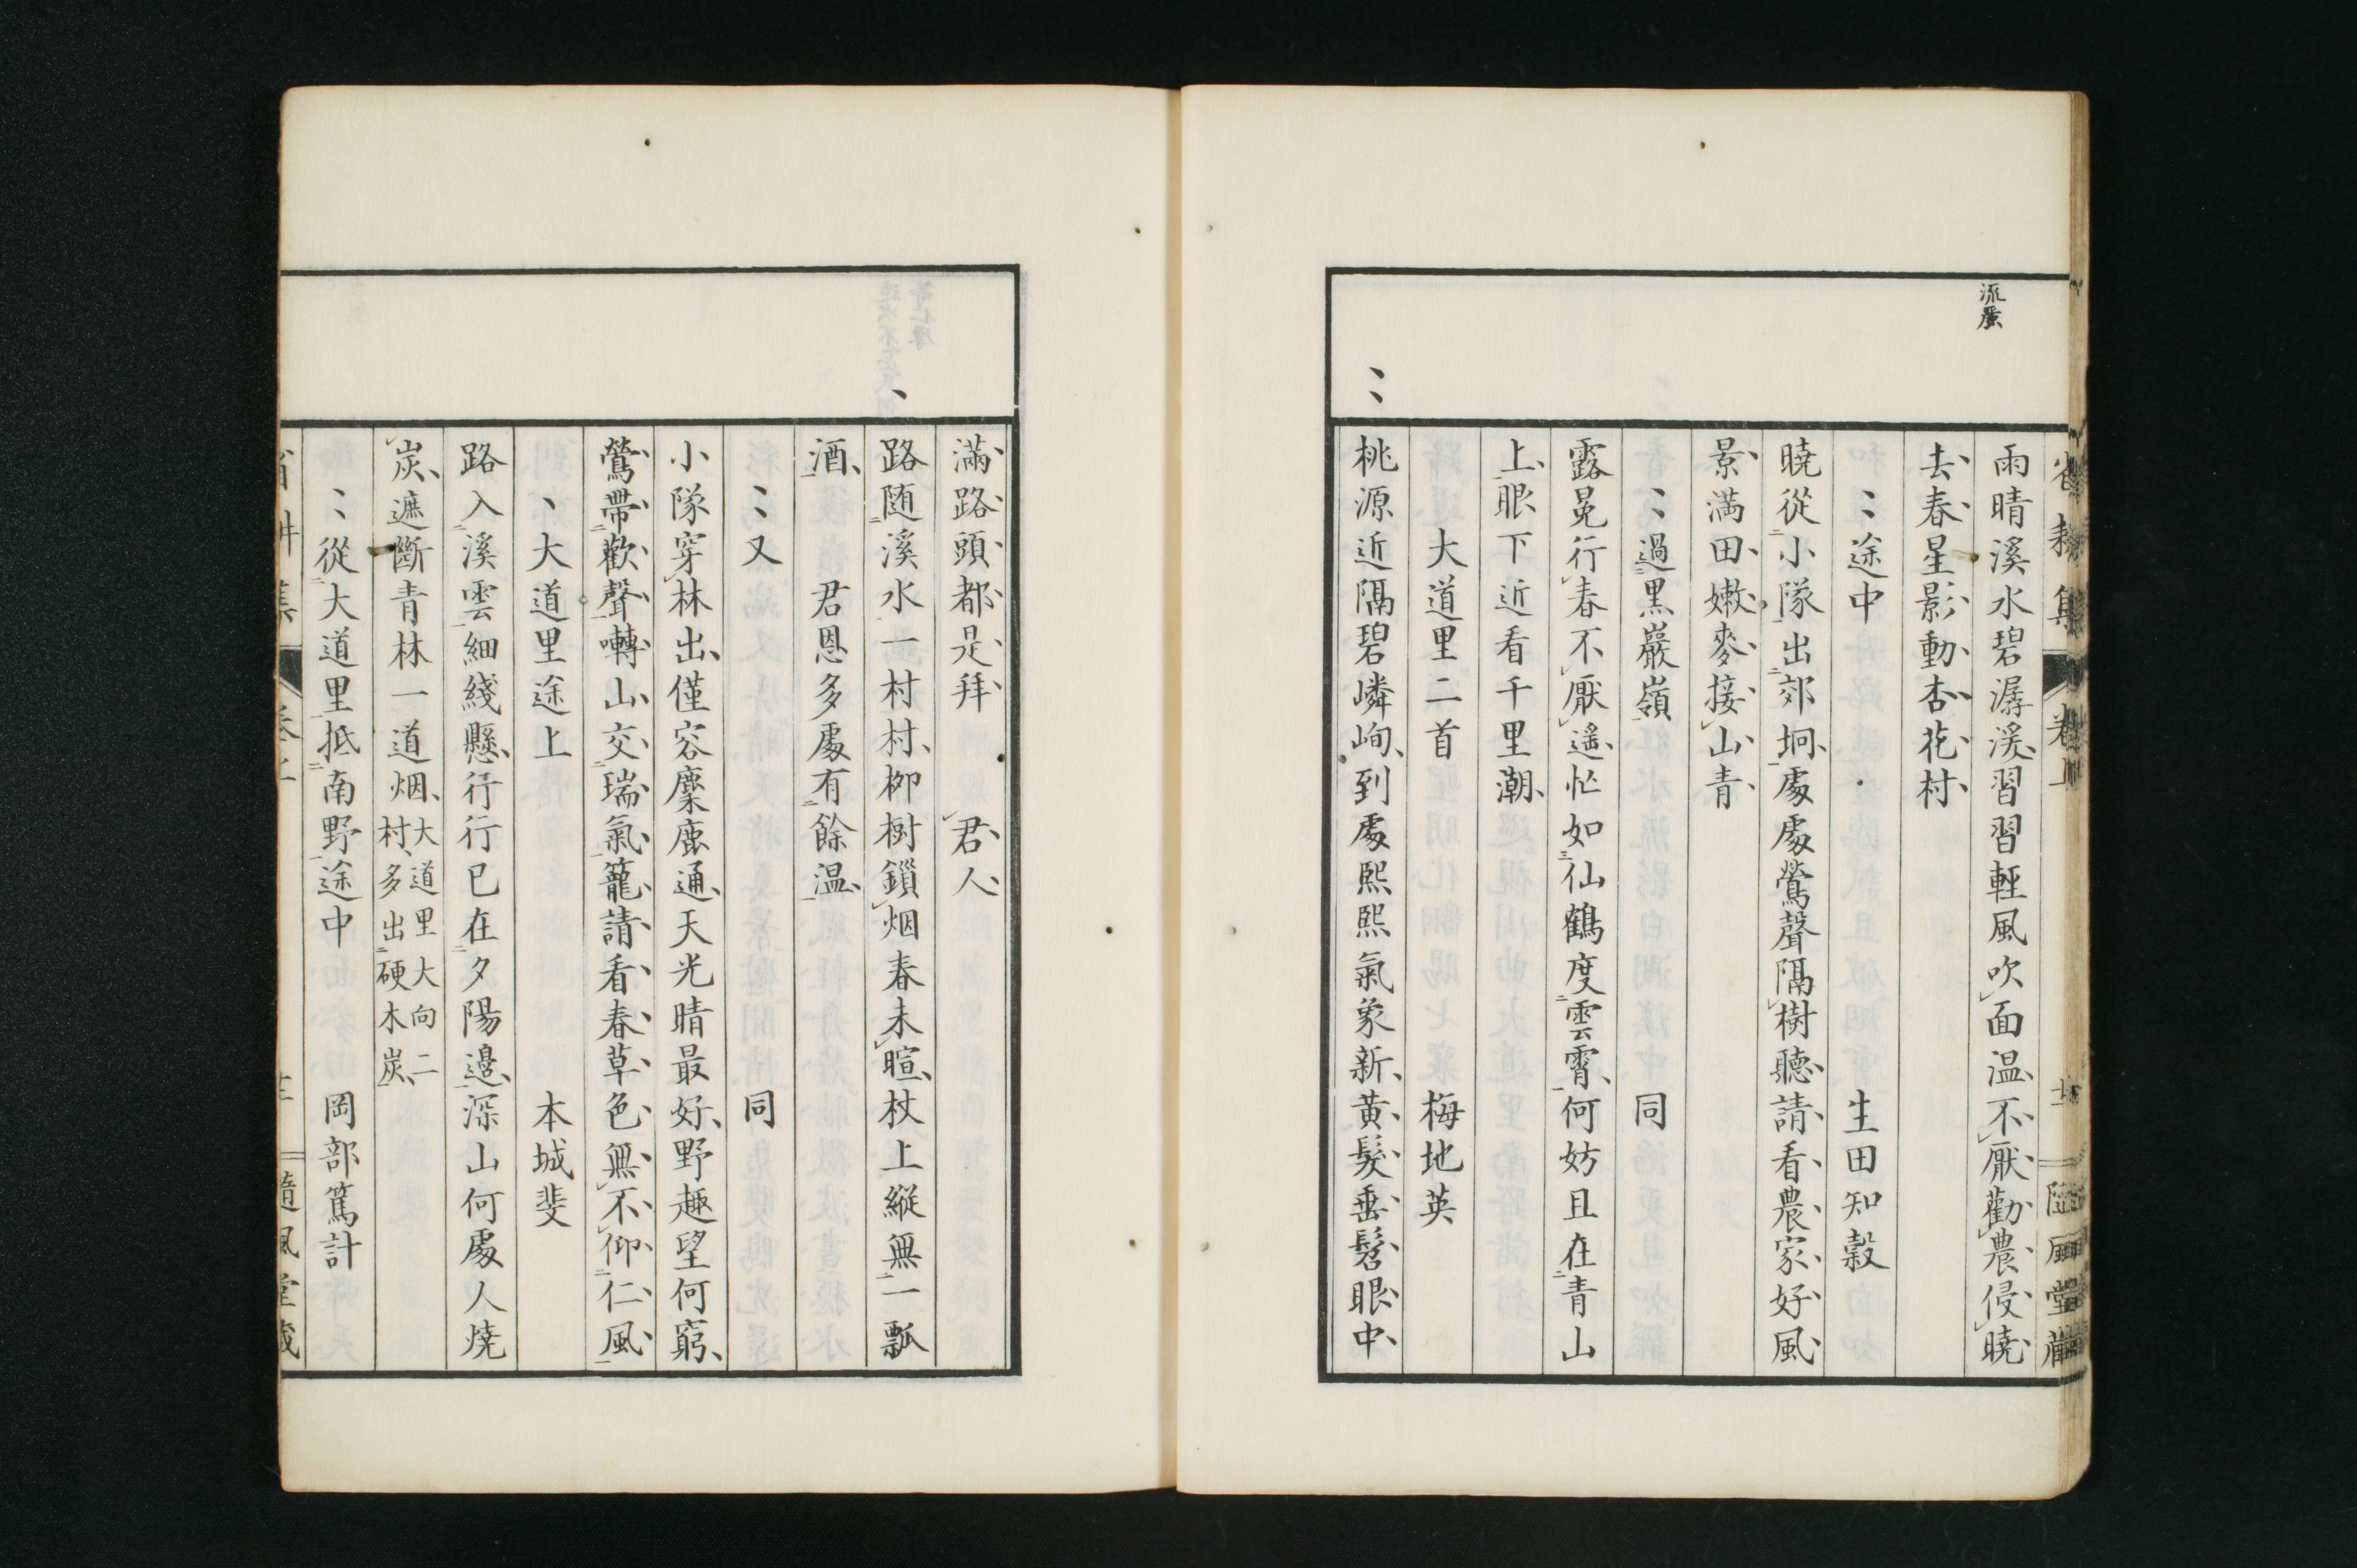 流麗
省耕集 卷上 隨風堂藏
雨晴溪水碧潺湲習習輕風吹面温不厭勸農侵曉
去春星影動杏花村
途中 生田知穀
曉從小隊出郊坰處處鶯聲隔樹聽請看農家好風
景滿田嫩麥接山青
過黒巖嶺 同
露冕行春不厭遥忙如仙鶴度雲霄何妨且在青山
上眼下近看千里潮
大道里二首 梅地英
桃源近隔碧嶙峋到處熙熙氣象新黄髮垂髫眼中
滿路頭都是拜 君人
路随溪水一村村栁樹鎖烟春未暄杖上縱無一瓢
酒 君恩多處有餘温
又 同
小隊穿林出僅容麋鹿通天光晴最好野趣望何窮
鶯帶歡聲囀山交瑞氣籠請看春草色無不仰仁風
大道里途上 本城斐
路入溪雲細綫懸行行已在夕陽邊深山何處人燒
炭遮斷青林一道烟 大道里大向二
村多出硬木炭
從大道里抵南野途中 岡部篤計
隨風堂藏